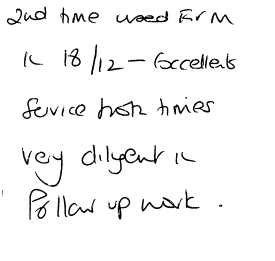 2nd time used Firm
in 18/12 - Excellent
service both times
very diligent in
Follow up work.